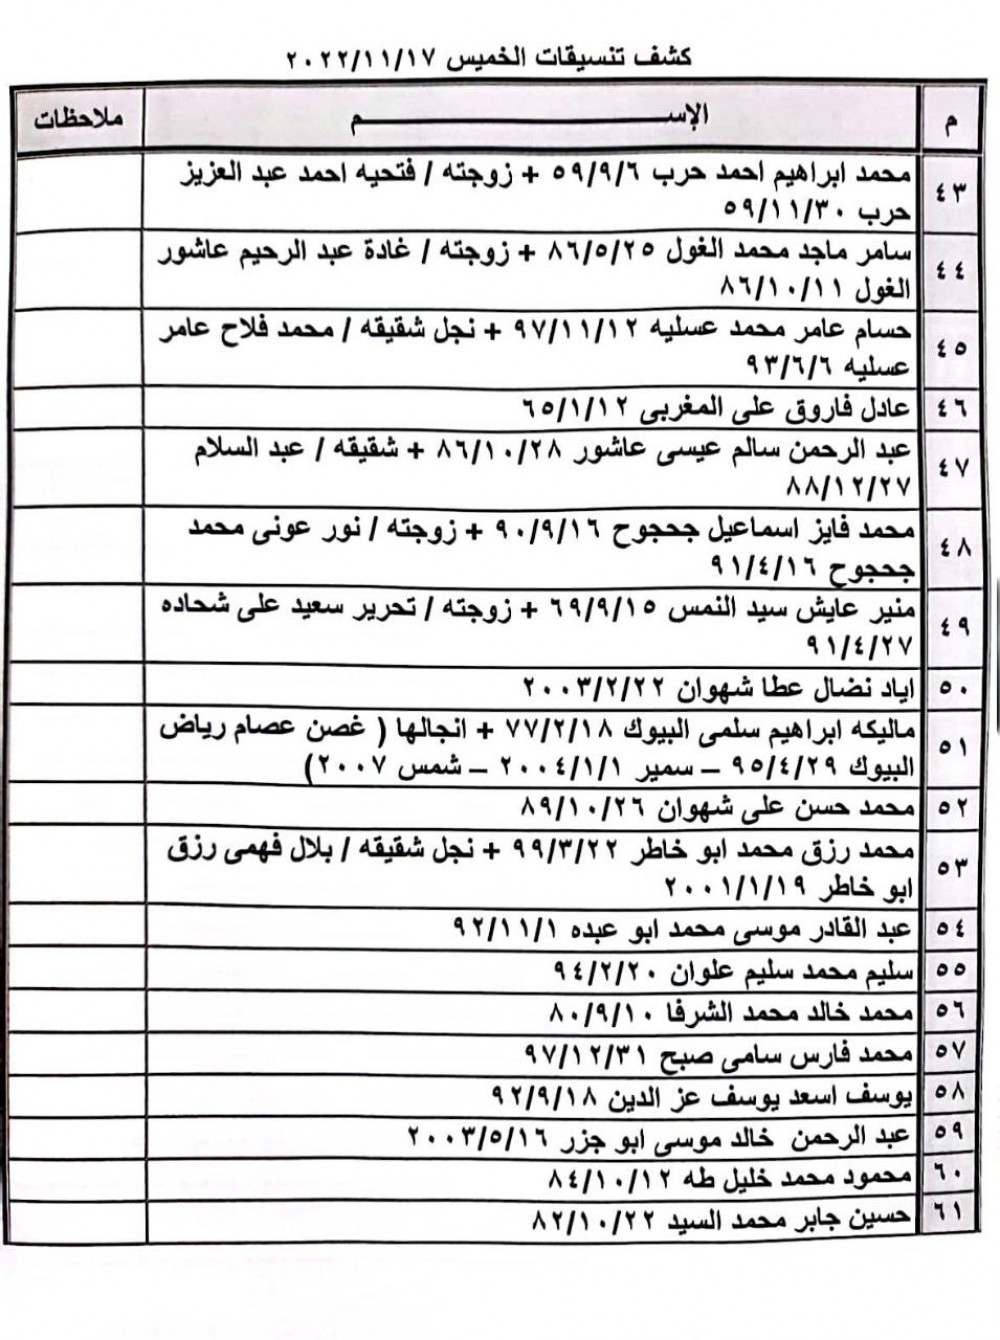 كشف تنسيقات الخميس ٢٠٢٢/١١/١٧
م الإســـــم ملاحظات
٤٣ محمد ابراهيم احمد حرب ٥٩/٩/٦ + زوجته / فتحيه احمد عبد العزيز
حرب ٥٩/١١/٣٠
٤٤ سامر ماجد محمد الغول ٨٦/٥/٢٥ + زوجته / غادة عبد الرحيم عاشور
الغول ٨٦/١٠/١١
٤٥ حسام عامر محمد عسليه ٩٧/١١/١٢ + نجل شقيقه / محمد فلاح عامر
عسليه ٩٣/٦/٦
٤٦ عادل فاروق على المغربى ٦٥/١/١٢
٤٧ عبد الرحمن سالم عيسى عاشور ٨٦/١٠/٢٨ + شقيقه / عبد السلام
٨٨/١٢/٢٧
٤٨ محمد فايز اسماعيل جحجوح ٩٠/٩/١٦ + زوجته / نور عونى محمد
جحجوح ٩١/٤/١٦
٤٩ منير عايش سيد النمس ٦٩/٩/١٥ + زوجته / تحرير سعيد على شحاده
٩١/٤/٢٧
٥٠ اياد نضال عطا شهوان ٢٠٠٣/٢/٢٢
٥١ ماليكه ابراهيم سلمى البيوك ٧٧/٢/١٨ + انجالها ( غصن عصام رياض
البيوك ٩٥/٤/٢٩ – سمير ٢٠٠٤/١/١ – شمس ٢٠٠٧)
٥٢ محمد حسن على شهوان ٨٩/١٠/٢٦
٥٣ محمد رزق محمد ابو خاطر ٩٩/٣/٢٢ + نجل شقيقه / بلال فهمى رزق
ابو خاطر ٢٠٠١/١/١٩
٥٤ عبد القادر موسى محمد ابو عبده ٩٢/١١/١
٥٥ سليم محمد سليم علوان ٩٤/٢/٢٠
٥٦ محمد خالد محمد الشرفا ٨٠/٩/١٠
٥٧ محمد فارس سامى صبح ٩٧/١٢/٣١
٥٨ يوسف اسعد يوسف عز الدين ٩٢/٩/١٨
٥٩ عبد الرحمن خالد موسى ابو جزر ٢٠٠٣/٥/١٦
٦٠ محمود محمد خليل طه ٨٤/١٠/١٢
٦١ حسين جابر محمد السيد ٨٢/١٠/٢٢